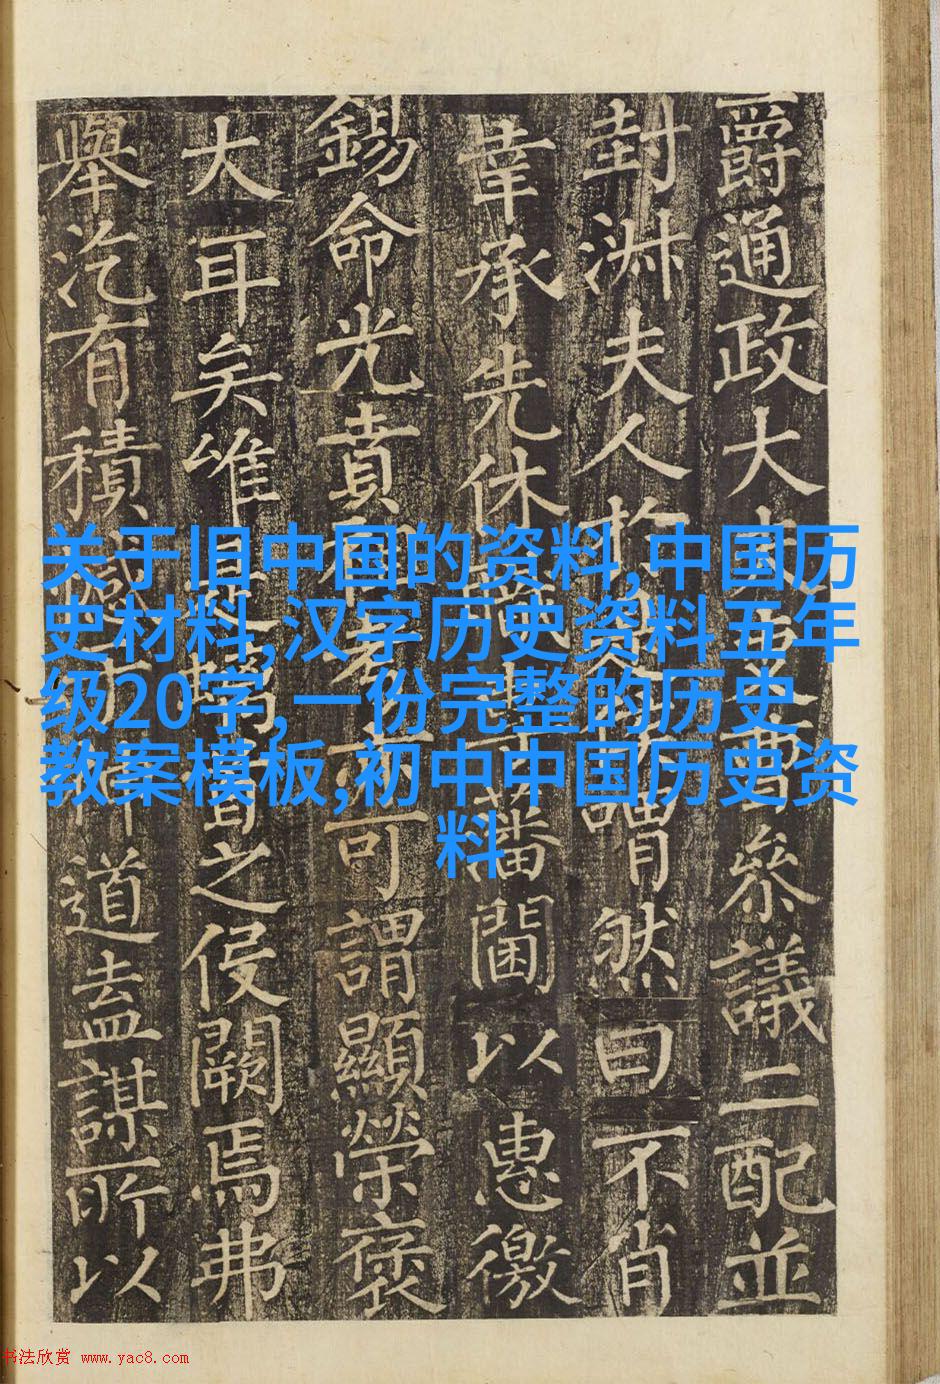 爵通政大夫參議二配並
封夫人謂然曰不肖
幸承先休藩閫以惠徼
錫命光賁可謂顯榮褒
大耳矣唯之侵闕焉弗
舉汔有積道去盍謀所以
关于旧中国的资料,中国历
史材料,汉字历史资料五年
级20字,一份完整的历史
教案模板,初中中国历史资
料
书法欣赏 www.yac8.com